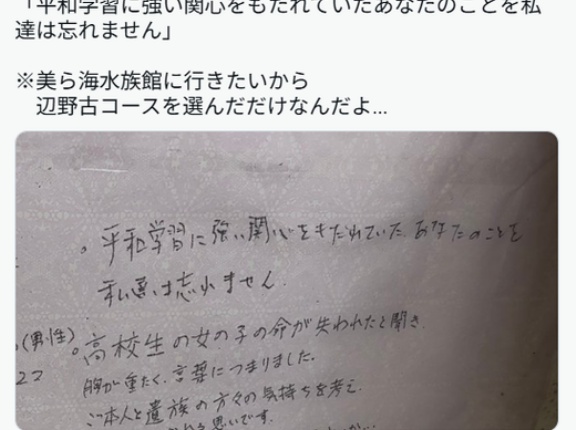 「平和学習に強い関心をもたれていたあなたのことを私
達は忘れません」
※美ら海水族館に行きたいから
辺野古コースを選んだだけなんだよ...
。平和学習に強い関心をもたれていたあなたのことを
私達は忘れません。
(男性)
。高校生の女の子の命が失われたと聞き、
胸が重たく、言葉につまりました。
22
ご本人と遺族の方々の気持ちを考え、
思いです。